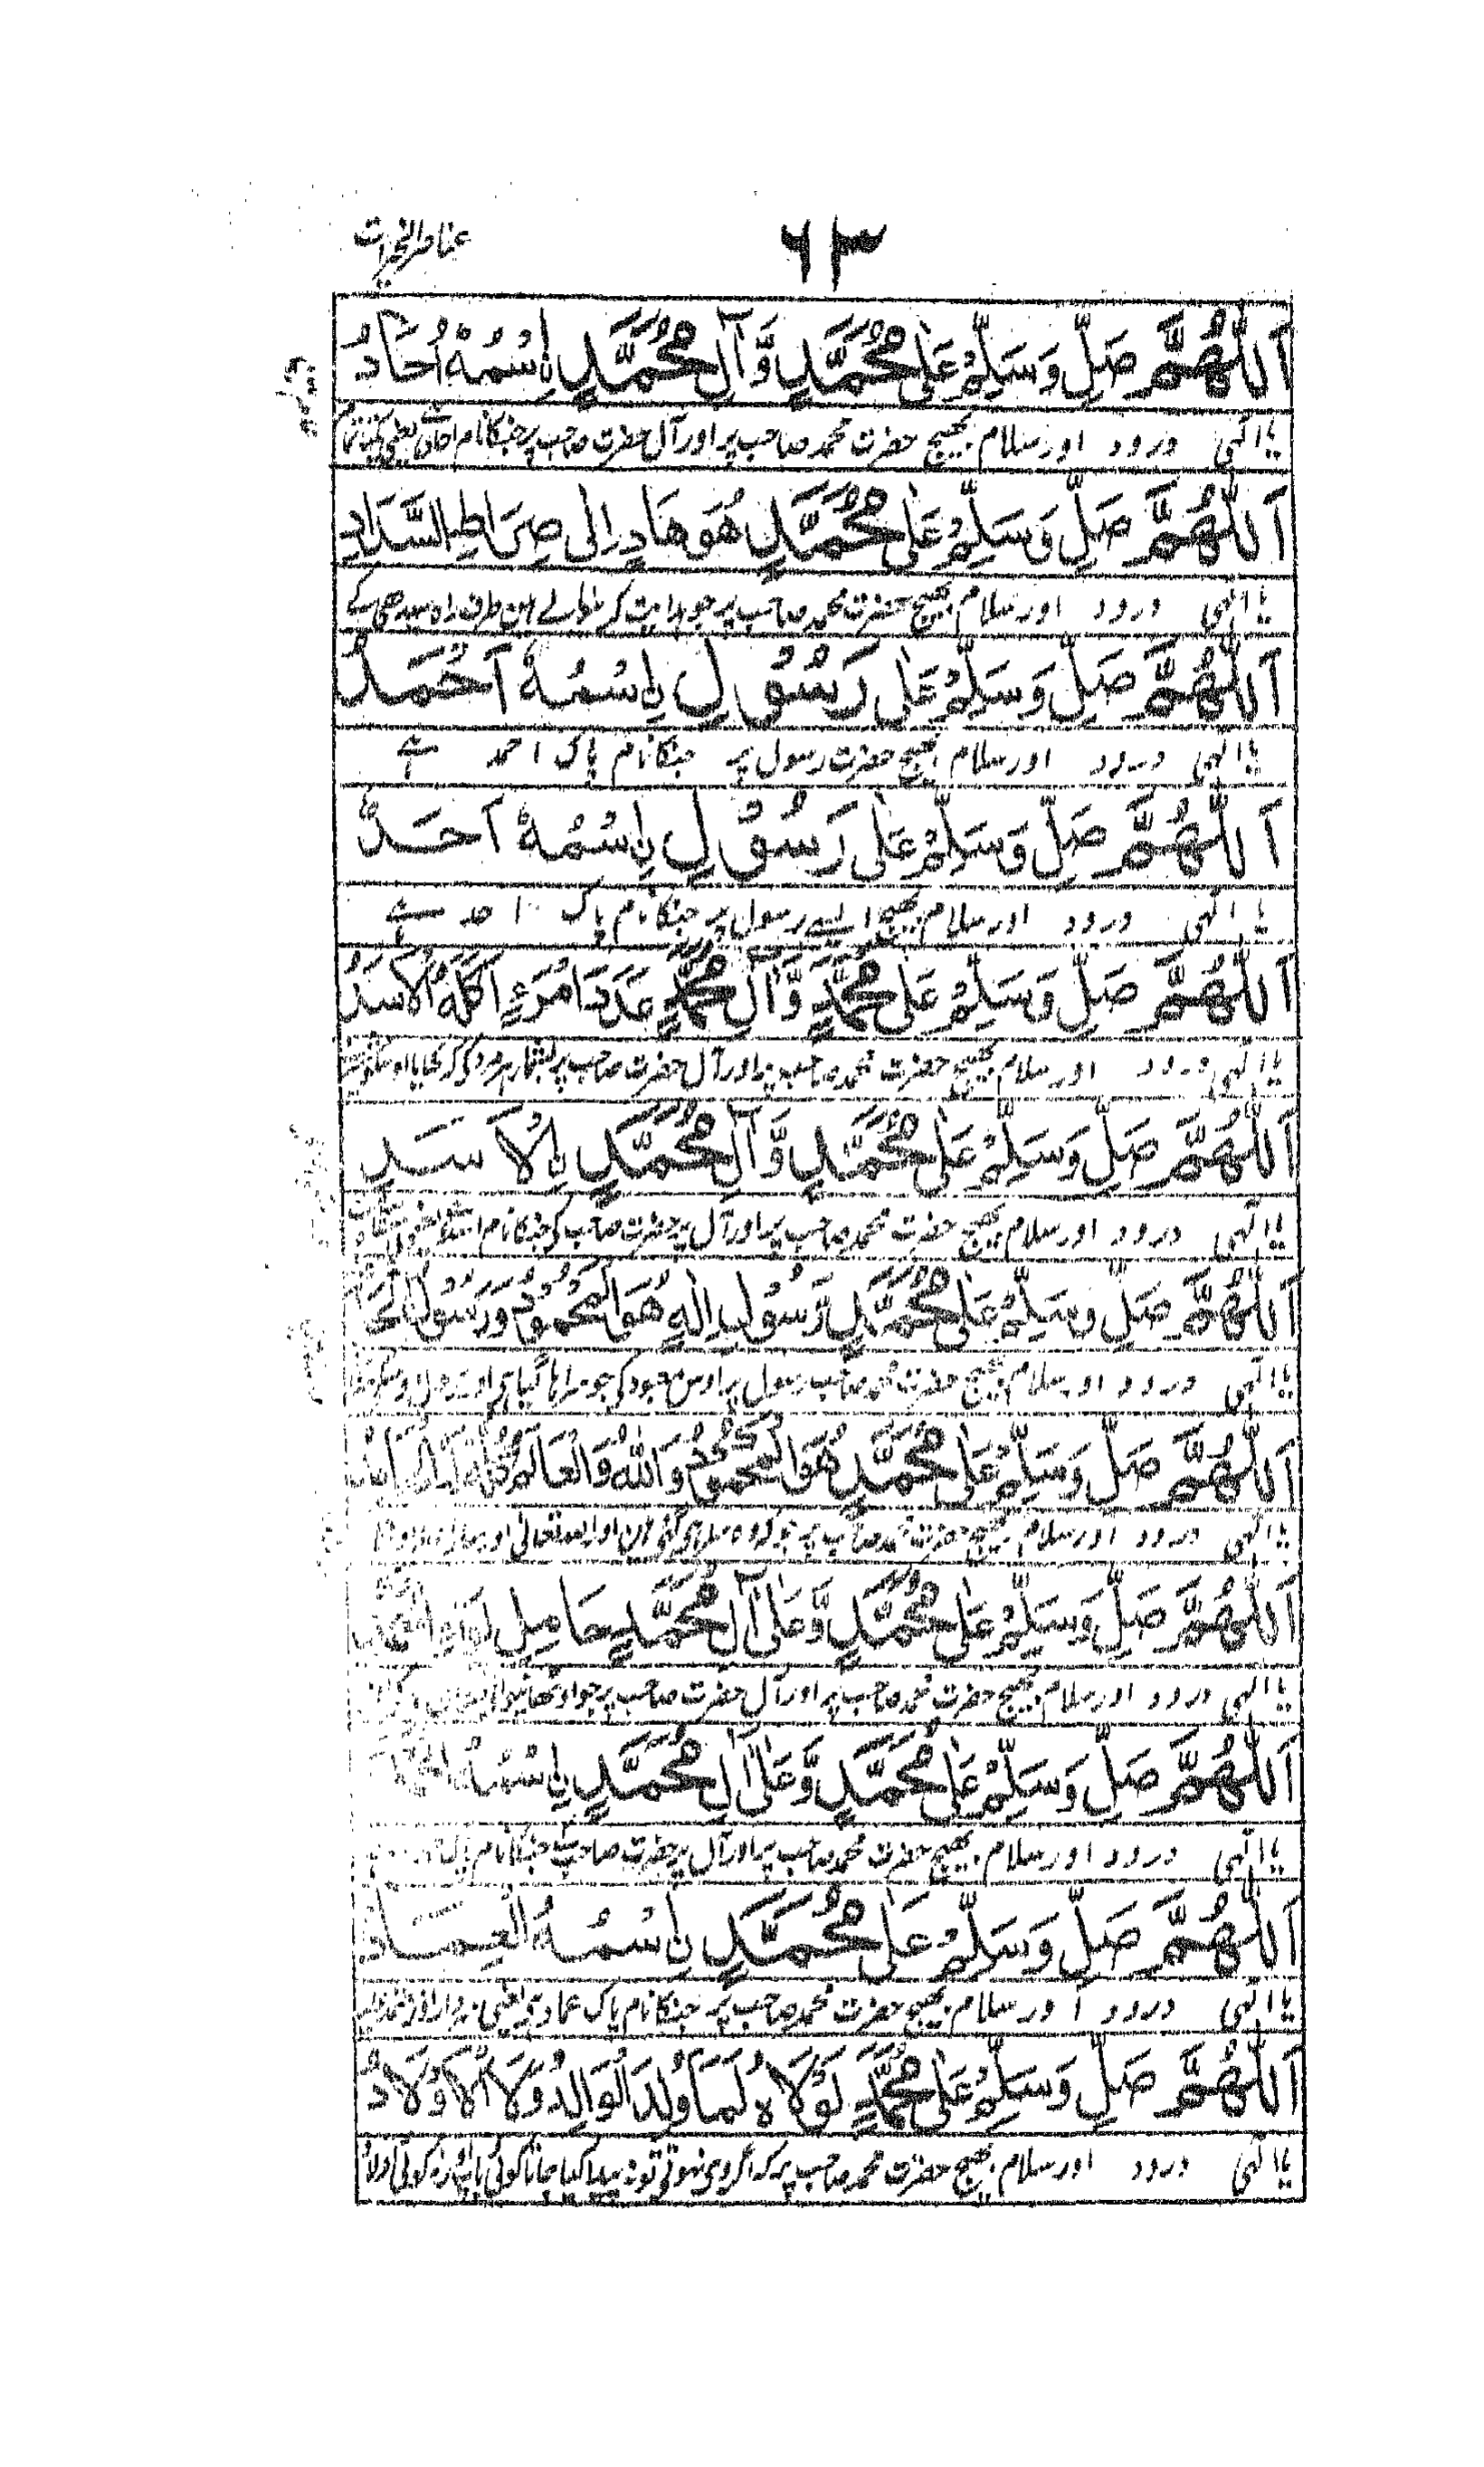 عناصر الخیرات
٦٣
اَللّٰهُمَّ صَلِّ وَسَلِّمْ عَلٰی مُحَمَّدٍ وَّآلِ مُحَمَّدٍ بِاسْمُهٗ اُحَادُ
یا الٰہی درود اور سلام بھیج حضرت محمد صاحب پر اور آل حضرت صاحب پر جنکا نام احاد ہے یعنی
اَللّٰهُمَّ صَلِّ وَسَلِّمْ عَلٰی مُحَمَّدٍ هُوَ هَادٍ اِلٰی صِرَاطِ السَّدَادِ
یا الٰہی درود اور سلام بھیج حضرت محمد صاحب پر جو ہدایت کرنیوالے ہین طرف راہ سیدھی کے
اَللّٰهُمَّ صَلِّ وَسَلِّمْ عَلٰی رَسُوْلٍ بِاسْمُهٗ اَحْمَدُ
یا الٰہی درود اور سلام بھیج حضرت رسول پر جنکا نام پاک احمد ہے
اَللّٰهُمَّ صَلِّ وَسَلِّمْ عَلٰی رَسُوْلٍ بِاسْمُهٗ اَحَدٌ
یا الٰہی درود اور سلام بھیج ایسے رسول پر جنکا نام پاک احد ہے
اَللّٰهُمَّ صَلِّ وَسَلِّمْ عَلٰی مُحَمَّدٍ وَّآلِ مُحَمَّدٍ عَدَدَ امْرَءٍ اَكَلَهُ الْاَسَدُ
یا الٰہی درود اور سلام بھیج حضرت محمد صاحب پر اور آل حضرت صاحب پر بشمار ہر مرد کی کہ کھایا اوسکو
اَللّٰهُمَّ صَلِّ وَسَلِّمْ عَلٰی مُحَمَّدٍ وَّآلِ مُحَمَّدٍ بِالْاَسَدِ
یا الٰہی درود اور سلام بھیج حضرت محمد صاحب پر اور آل پر حضرت صاحب کی جنکا نام
اَللّٰهُمَّ صَلِّ وَسَلِّمْ عَلٰی مُحَمَّدٍ رَّسُوْلِ اِلٰهٍ هُوَ الْمَحْمُوْدُ وَرَسُوْلُ
یا الٰہی درود اور سلام بھیج حضرت محمد صاحب رسول پر اوس معبود کی جو سراہا گیا ہی اور
اَللّٰهُمَّ صَلِّ وَسَلِّمْ عَلٰی مُحَمَّدٍ هُوَ الْمَحْمُوْدُ وَاللّٰهُ وَالْعَالَمُ كُلُّهٗ
یا الٰہی درود اور سلام بھیج حضرت محمد صاحب پر جو کہ وہ سراہی گئی ہین اور اللہ تعالی اور
اَللّٰهُمَّ صَلِّ وَسَلِّمْ عَلٰی مُحَمَّدٍ وَّعَلٰی آلِ مُحَمَّدٍ حَامِلِ لِوَاءِ
یا الٰہی درود اور سلام بھیج حضرت محمد صاحب پر اور آل حضرت صاحب پر جو اوٹھانیوالے
اَللّٰهُمَّ صَلِّ وَسَلِّمْ عَلٰی مُحَمَّدٍ وَّعَلٰی اٰلِ مُحَمَّدٍ بِاسْمُهُ
یا الٰہی درود اور سلام بھیج حضرت محمد صاحب پر اور آل پر حضرت صاحب جنکا نام پاک
اَللّٰهُمَّ صَلِّ وَسَلِّمْ عَلٰی مُحَمَّدٍ بِاسْمُهُ الْعِمَادُ
یا الٰہی درود اور سلام بھیج حضرت محمد صاحب پر جنکا نام پاک عماد ہی یعنی
اَللّٰهُمَّ صَلِّ وَسَلِّمْ عَلٰی مُحَمَّدٍ لَوْلَاهُ لَمَا وُلِدَ الْوَالِدُ وَلَا الْاَوْلَادُ
یا الٰہی درود اور سلام بھیج حضرت محمد صاحب پر کہ اگر وہ نہوتی تو نہ پیدا کیا جاتا کوئی باپ اور نہ کوئی اولاد